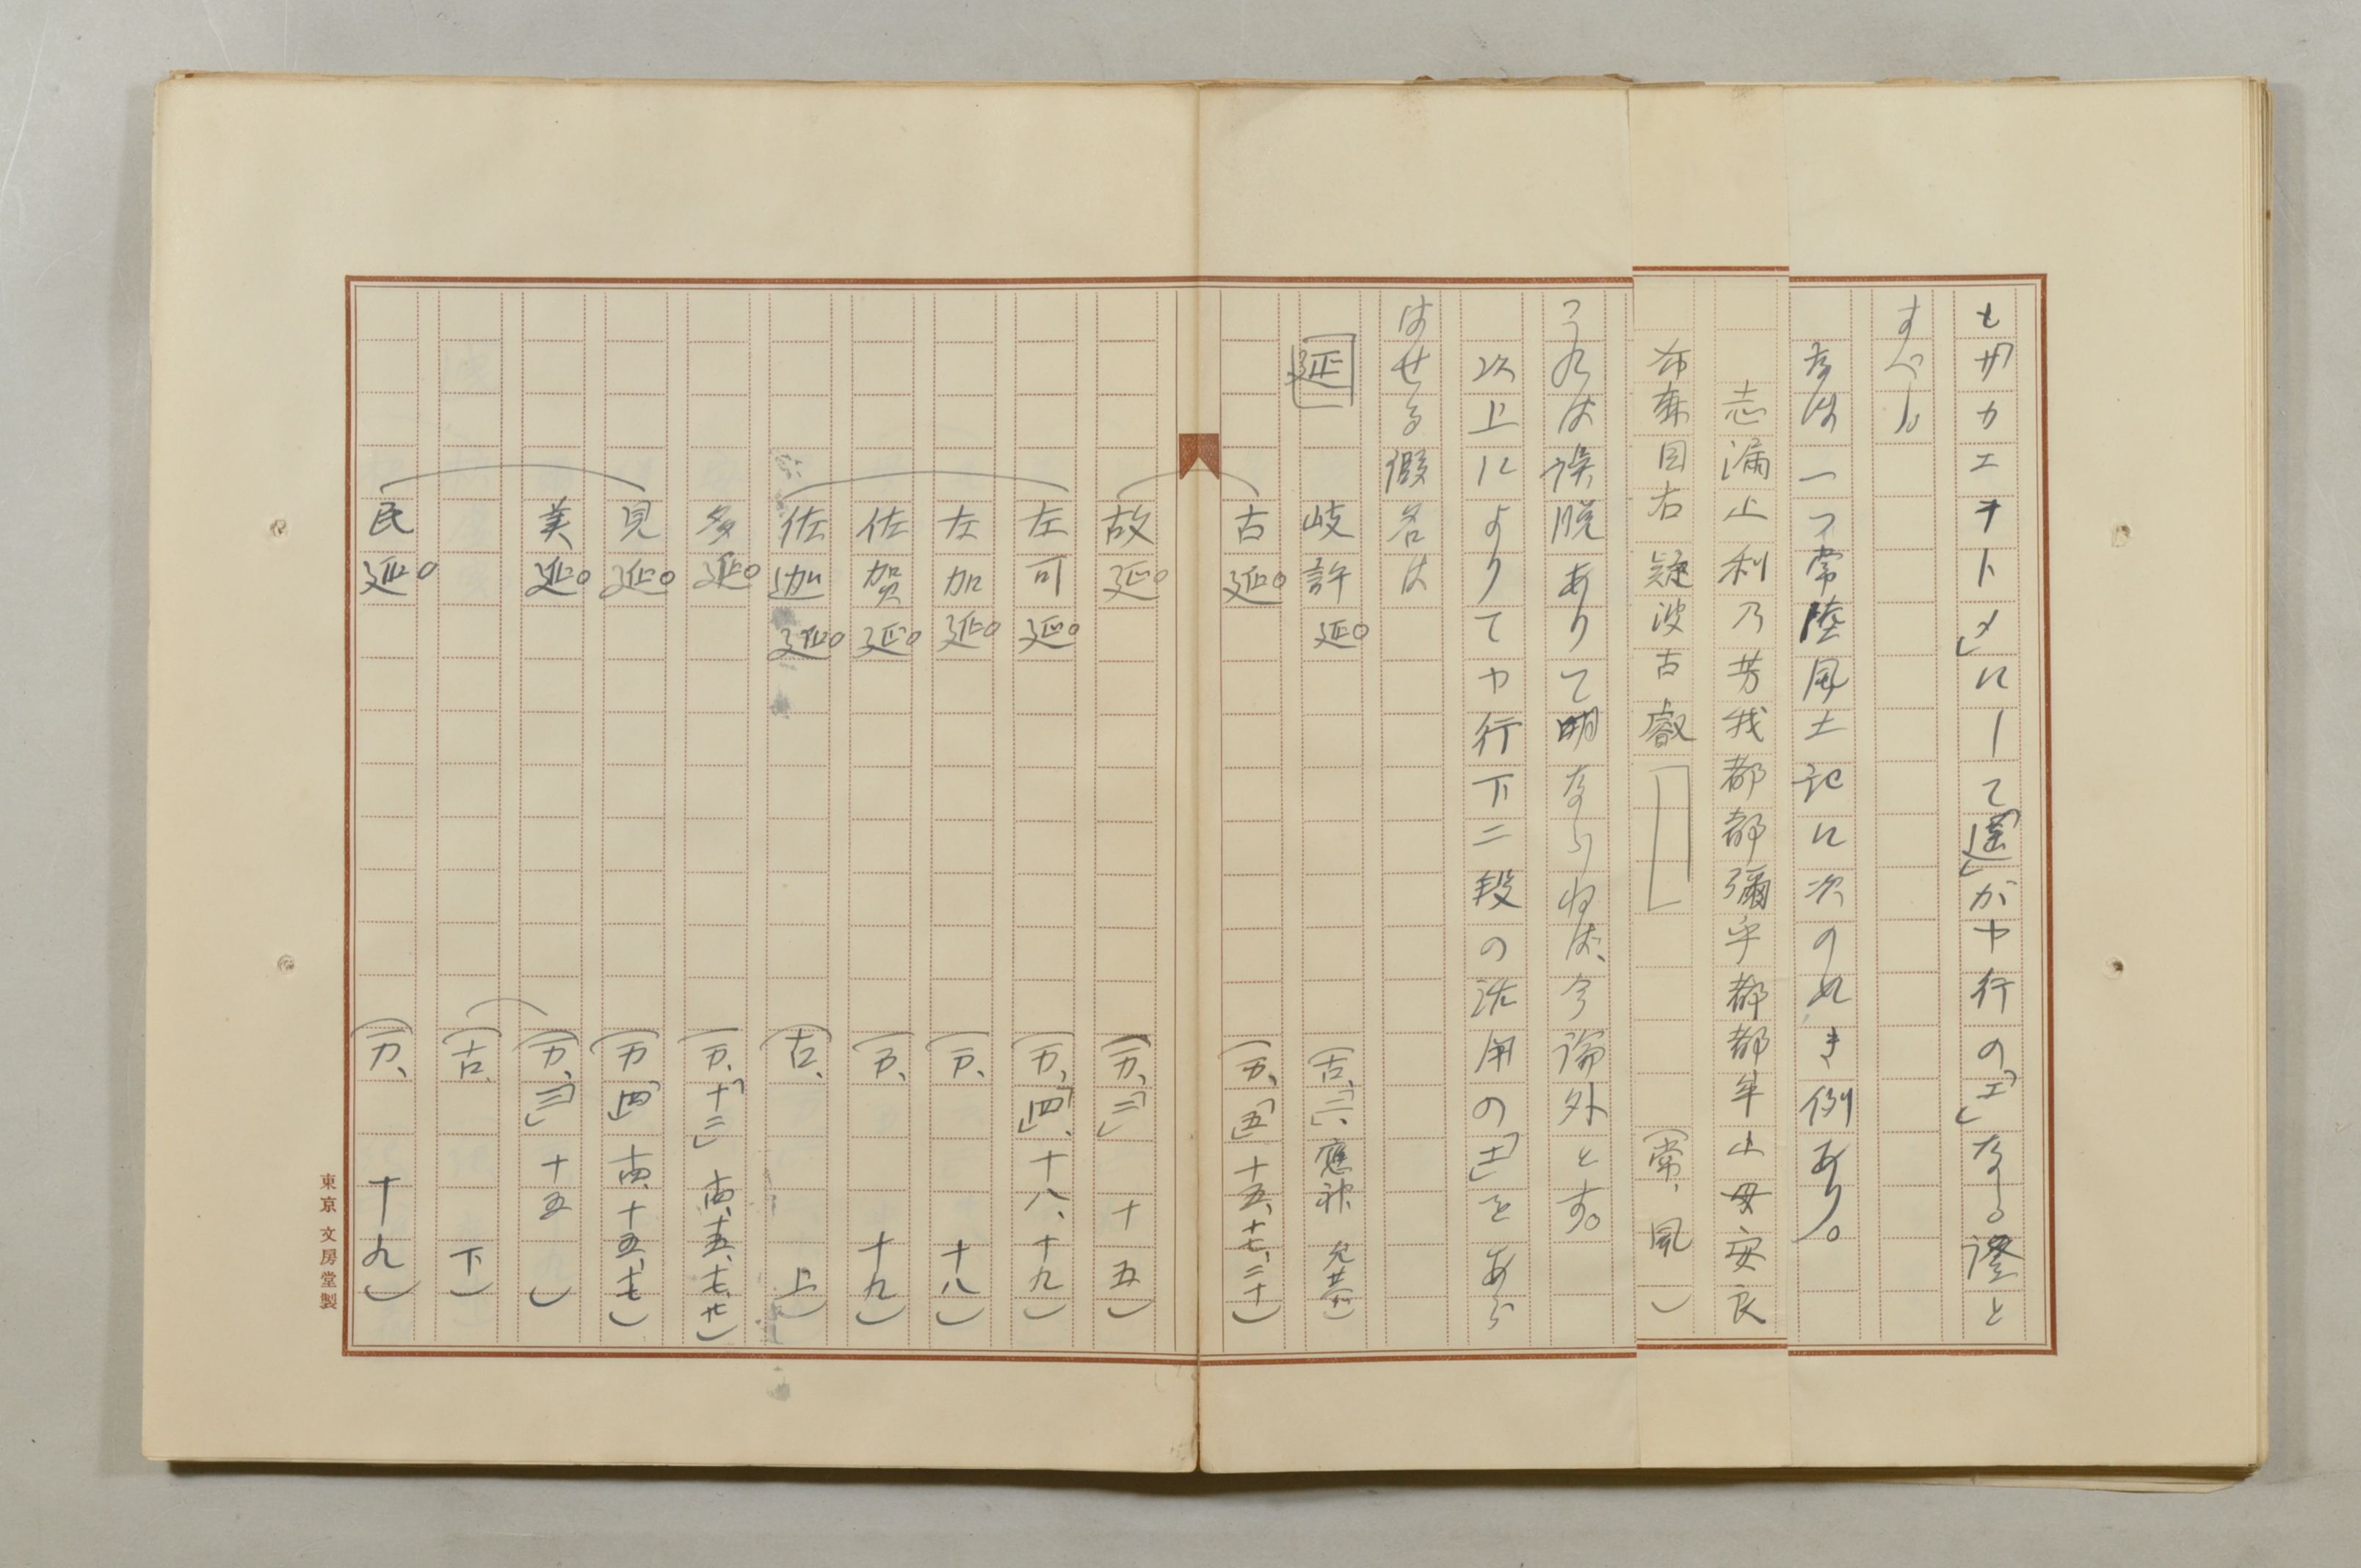 も「サカエヲトメ」にして「遥」がヤ行の「エ」なる證と
すべし。
なほ一つ常陸風土記に次のぬき例あり。
志漏止利乃芳我都都彌乎都都牟止母安良
布麻目右疑波古叡
(常、風)
これは誤脱ありて明ならねば、今論外とす。
次上によりてヤ行下二段の活用の「エ」をあら
はせる假名は
延
岐許延。 (古、「一」、應神 允恭)
古延。 (万、「五」十五、十七、二十)
故延。 (万、「二」 十五)
左可延。 (万、「四」、十八、十九)
左加延。 (万、 十八)
佐賀延。 (万、 十九)
佐迦延。 (古、 上)
多延。 (万、「十二」 十四、十五、十七、廿)
見延。 (万「四」 十四、十五、十七)
美延。 (万、「三」 十五)
(古、 下)
民延。 (万、 十九)
東京 文房堂製